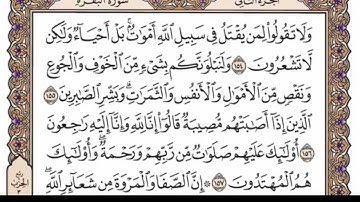 الجزء الثاني سورة البقرة
وَلَا تَقُولُوا۟ لِمَن يُقْتَلُ فِى سَبِيلِ ٱللَّهِ أَمْوَٰتٌۢ ۚ بَلْ أَحْيَآءٌ وَلَٰكِن
لَّا تَشْعُرُونَ ١٥٤ وَلَنَبْلُوَنَّكُم بِشَىْءٍ مِّنَ ٱلْخَوْفِ وَٱلْجُوعِ
وَنَقْصٍ مِّنَ ٱلْأَمْوَٰلِ وَٱلْأَنفُسِ وَٱلثَّمَرَٰتِ ۗ وَبَشِّرِ ٱلصَّٰبِرِينَ ١٥٥
ٱلَّذِينَ إِذَآ أَصَٰبَتْهُم مُّصِيبَةٌ قَالُوٓا۟ إِنَّا لِلَّهِ وَإِنَّآ إِلَيْهِ رَٰجِعُونَ ١٥٦
أُو۟لَٰٓئِكَ عَلَيْهِمْ صَلَوَٰتٌ مِّن رَّبِّهِمْ وَرَحْمَةٌ ۖ وَأُو۟لَٰٓئِكَ
هُمُ ٱلْمُهْتَدُونَ ١٥٧ ۞ إِنَّ ٱلصَّفَا وَٱلْمَرْوَةَ مِن شَعَآئِرِ ٱللَّهِ ۖ
ربع
الحزب
٣